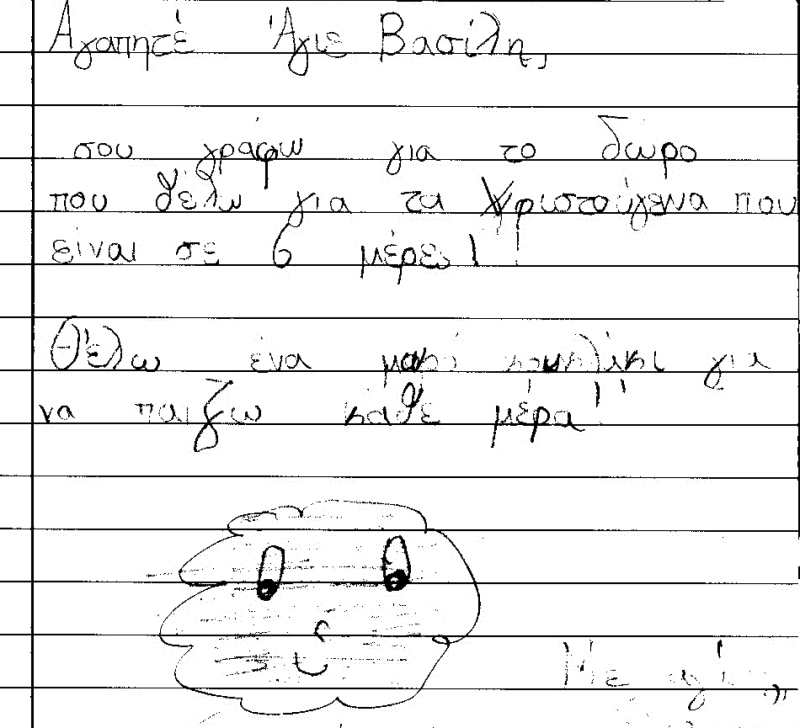 Αγαπητέ Άγιε Βασίλη,
σου γράφω για το δώρο
που θέλω για τα Χριστούγενα που
είναι σε 6 μέρες!!
Θέλω ένα μικρό κουκλάκι για
να παιζω κάθε μέρα!!
Με